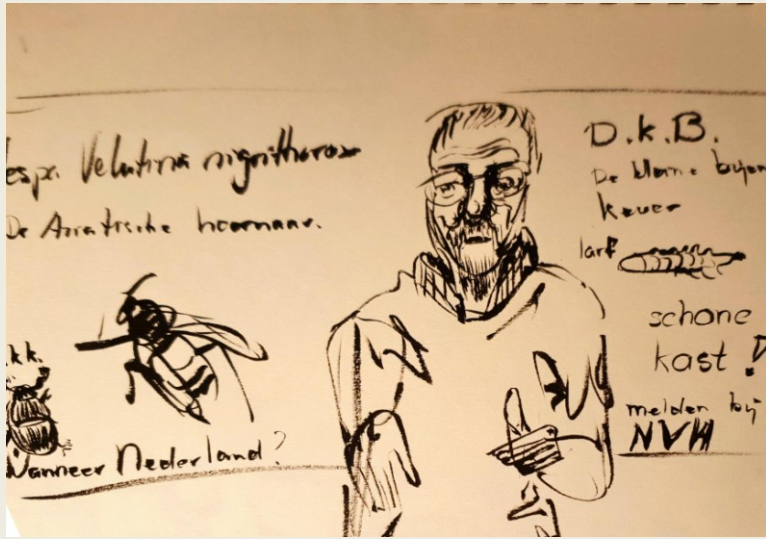 espa Velutina nigrithorax
De Aziatische hoornaar.
.k.k.
Wanneer Nederland?
D.k.B.
De kleine bijen
kever
larf
schone
kast !
melden bij
NVH